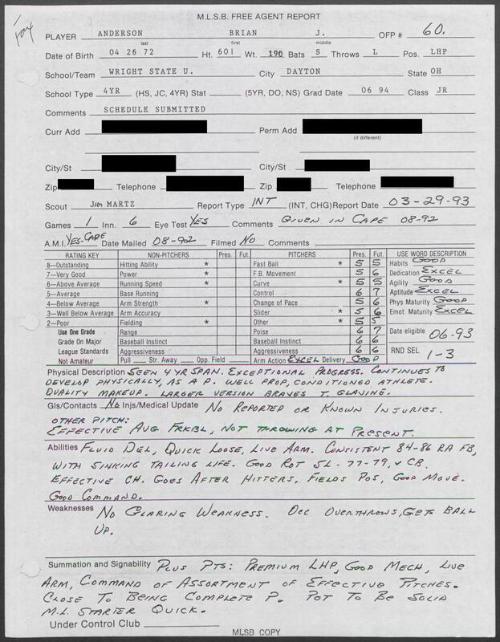 M.L.S.B. FREE AGENT REPORT
PLAYER ANDERSON BRIAN J. OFP # 60.
last first middle
Date of Birth 04 26 72 Ht. 601 Wt. 190 Bats S Throws L Pos. LHP
School/Team WRIGHT STATE U. City DAYTON State OH
School Type 4YR (HS, JC, 4YR) Stat (5YR, DO, NS) Grad Date 06 94 Class JR
Comments SCHEDULE SUBMITTED
Curr Add Perm Add
(if different)
City/St City/St
Zip Telephone Zip Telephone
Scout Jim MARTZ Report Type INT (INT, CHG) Report Date 03-29-93
Games 1 Inn. 6 Eye Test YES Comments GIVEN IN CAPE 08-92
A.M.I. YES-CAPE Date Mailed 08-92 Filmed NO Comments
RATING KEY NON-PITCHERS Pres. Fut. PITCHERS Pres. Fut. USE WORD DESCRIPTION
8—Outstanding Hitting Ability * Fast Ball * 5 5 Habits GOOD
7—Very Good Power * F.B. Movement 5 6 Dedication EXCEL
6—Above Average Running Speed * Curve * 5 5 Agility GOOD
5—Average Base Running Control 6 7 Aptitude EXCEL
4—Below Average Arm Strength * Change of Pace 5 6 Phys Maturity GOOD
3—Well Below Average Arm Accuracy Slider * 5 6 Emot. Maturity EXCEL
2—Poor Fielding * Other * 5 5
Use One Grade Range Poise 6 7 Date eligible 06-93
Grade On Major Baseball Instinct Baseball Instinct 6 6
League Standards Aggressiveness Aggressiveness 6 6 RND SEL 1-3
Not Amateur Pull Str. Away Opp. Field Arm Action EXCEL Delivery GOOD
Physical Description SEEN 4 YR SPAN. EXCEPTIONAL PROGRESS. CONTINUES TO
DEVELOP PHYSICALLY, AS A P. WELL PROP, CONDITIONED ATHLETE.
QUALITY MAKEUP. LARGER VERSION BRAVES T. GLAVINE.
Gls/Contacts NO Injs/Medical Update NO REPORTED OR KNOWN INJURIES.
OTHER PITCH:
EFFECTIVE AUG FRKBL, NOT THROWING AT PRESENT.
Abilities FLUID DEL, QUICK LOOSE, LIVE ARM. CONSISTENT 84-86 RA FB,
WITH SINKING TAILING LIFE. GOOD ROT SL-77-79, & CB.
EFFECTIVE CH. GOES AFTER HITTERS. FIELDS POS, GOOD MOVE.
GOOD COMMAND.
Weaknesses NO GLARING WEAKNESS. OCC OVERTHROWS, GETS BALL
UP.
Summation and Signability PLUS PTS: PREMIUM LHP, GOOD MECH, LIVE
ARM, COMMAND OF ASSORTMENT OF EFFECTIVE PITCHES.
CLOSE TO BEING COMPLETE P. POT TO BE SOLID
M.L. STARTER QUICK.
Under Control Club
MLSB COPY